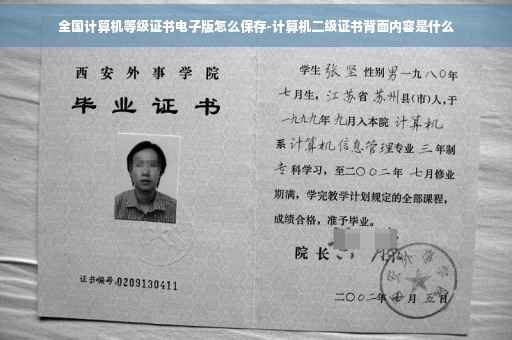 全国计算机等级证书电子版怎么保存-计算机二级证书背面内容是什么
西安外事学院
毕业证书
证书编号:0209130411
学生张坚性别男一九八〇年
七月生,江苏省苏州县(市)人,于
一九九九年九月入本院计算机
系计算机信息管理专业三年制
专科学习,至二〇〇二年七月修业
期满,学完教学计划规定的全部课程,
成绩合格,准予毕业。
院长
二〇〇二年七月五日